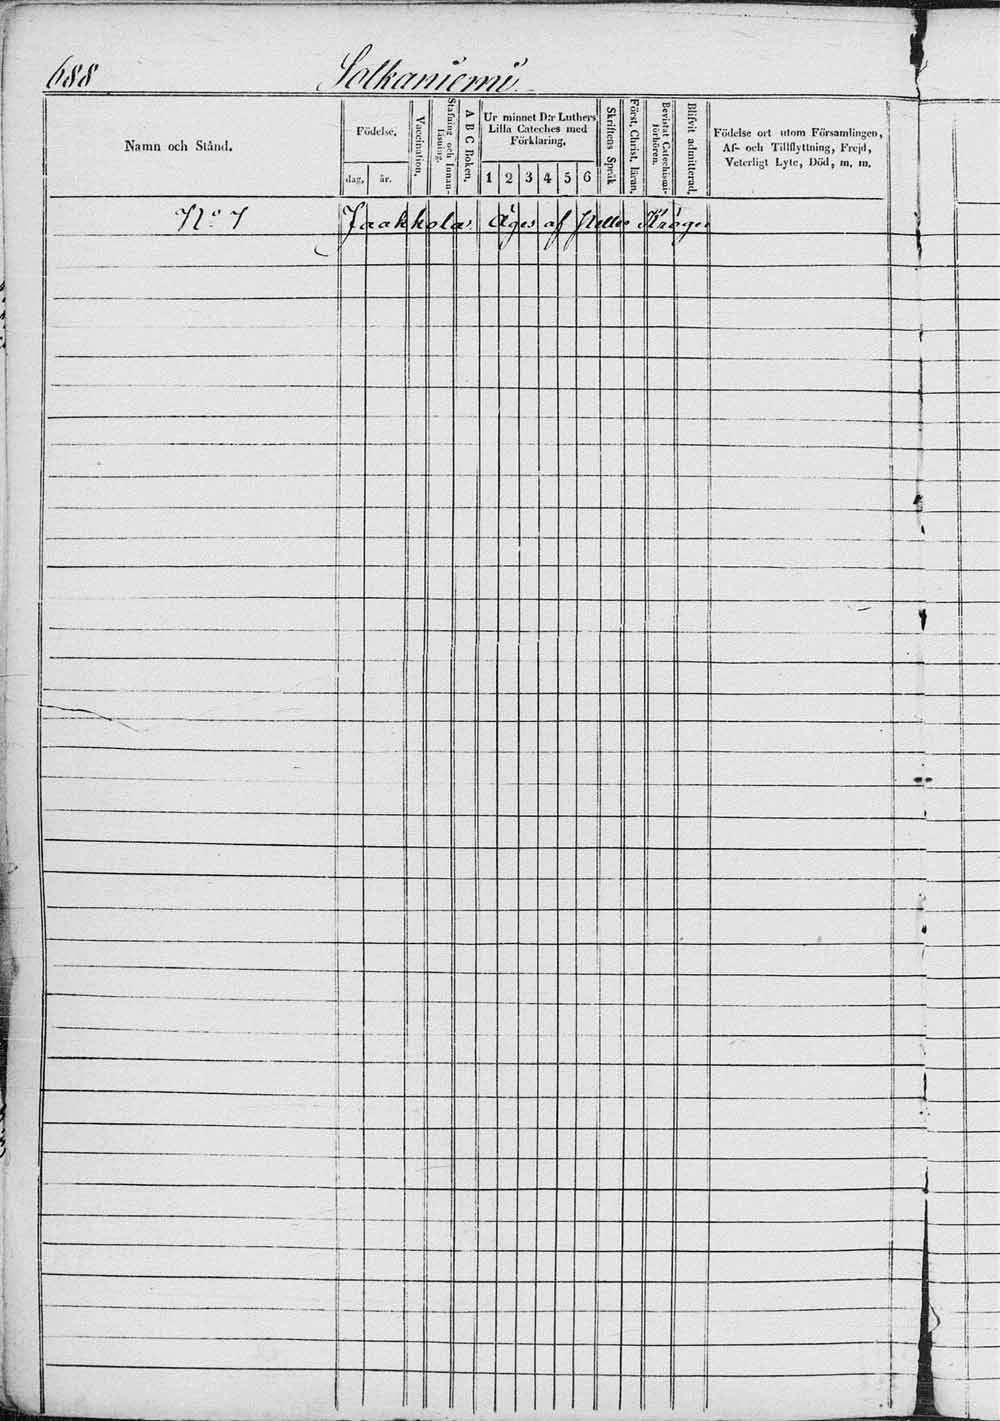 688 Solkaniemi
Namn och Stånd.
Födelse.
dag. år.
Vaccination.
Stafning och Innan-
läsning.
A B C Boken.
Ur minnet D:r Luthers
Lilla Cateches med
Förklaring.
1 2 3 4 5 6
Skriftens Språk
Först. Christ. läran.
Bevistat Catechismi-
förhören.
Blifvit admitterad.
Födelse ort utom Församlingen,
Af- och Tillflyttning, Frejd,
Veterligt Lyte, Död, m. m.
No 7 Jaakkola. Äges af Kröger